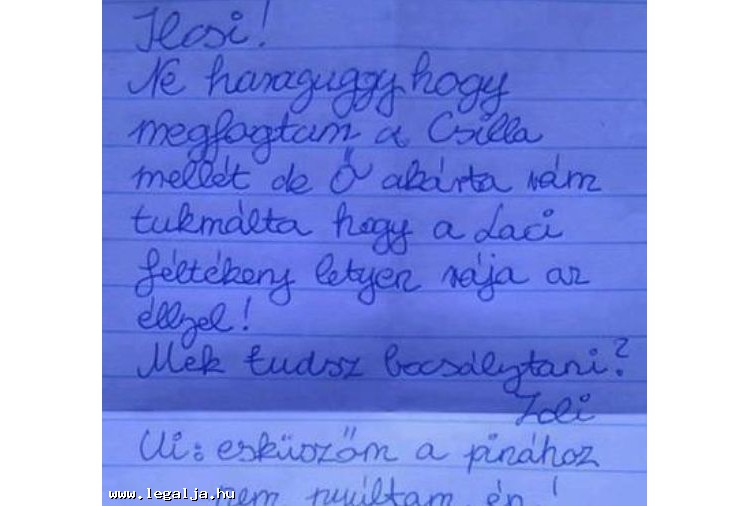 Ilcsi!
Ne haraguggy hogy
megfogtam a Csilla
mellét de Ő akárta rám
tukmálta hogy a Laci
féltékeny letyen rája az
éllyel!
Mek tudsz bocsálytani?
Zoli
Ui: esküszőm a pinához
nem nyúltam én!
www.legalja.hu